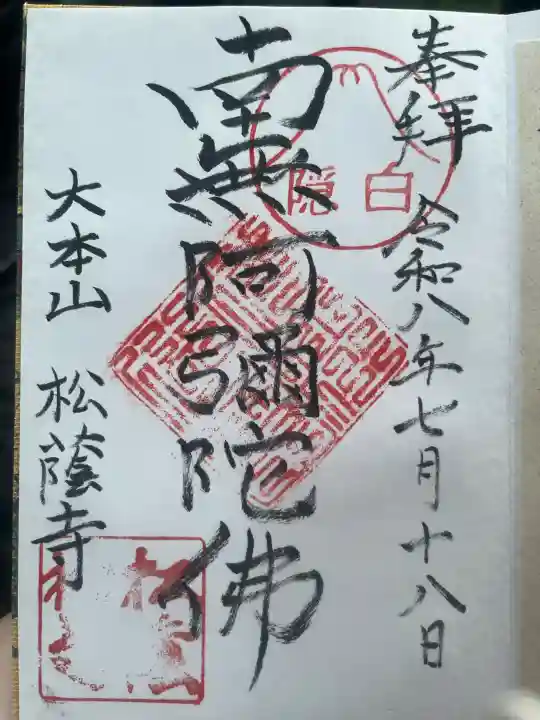 奉拝 令和八年七月十八日
白隠
南無阿彌陀佛
大本山 松蔭寺